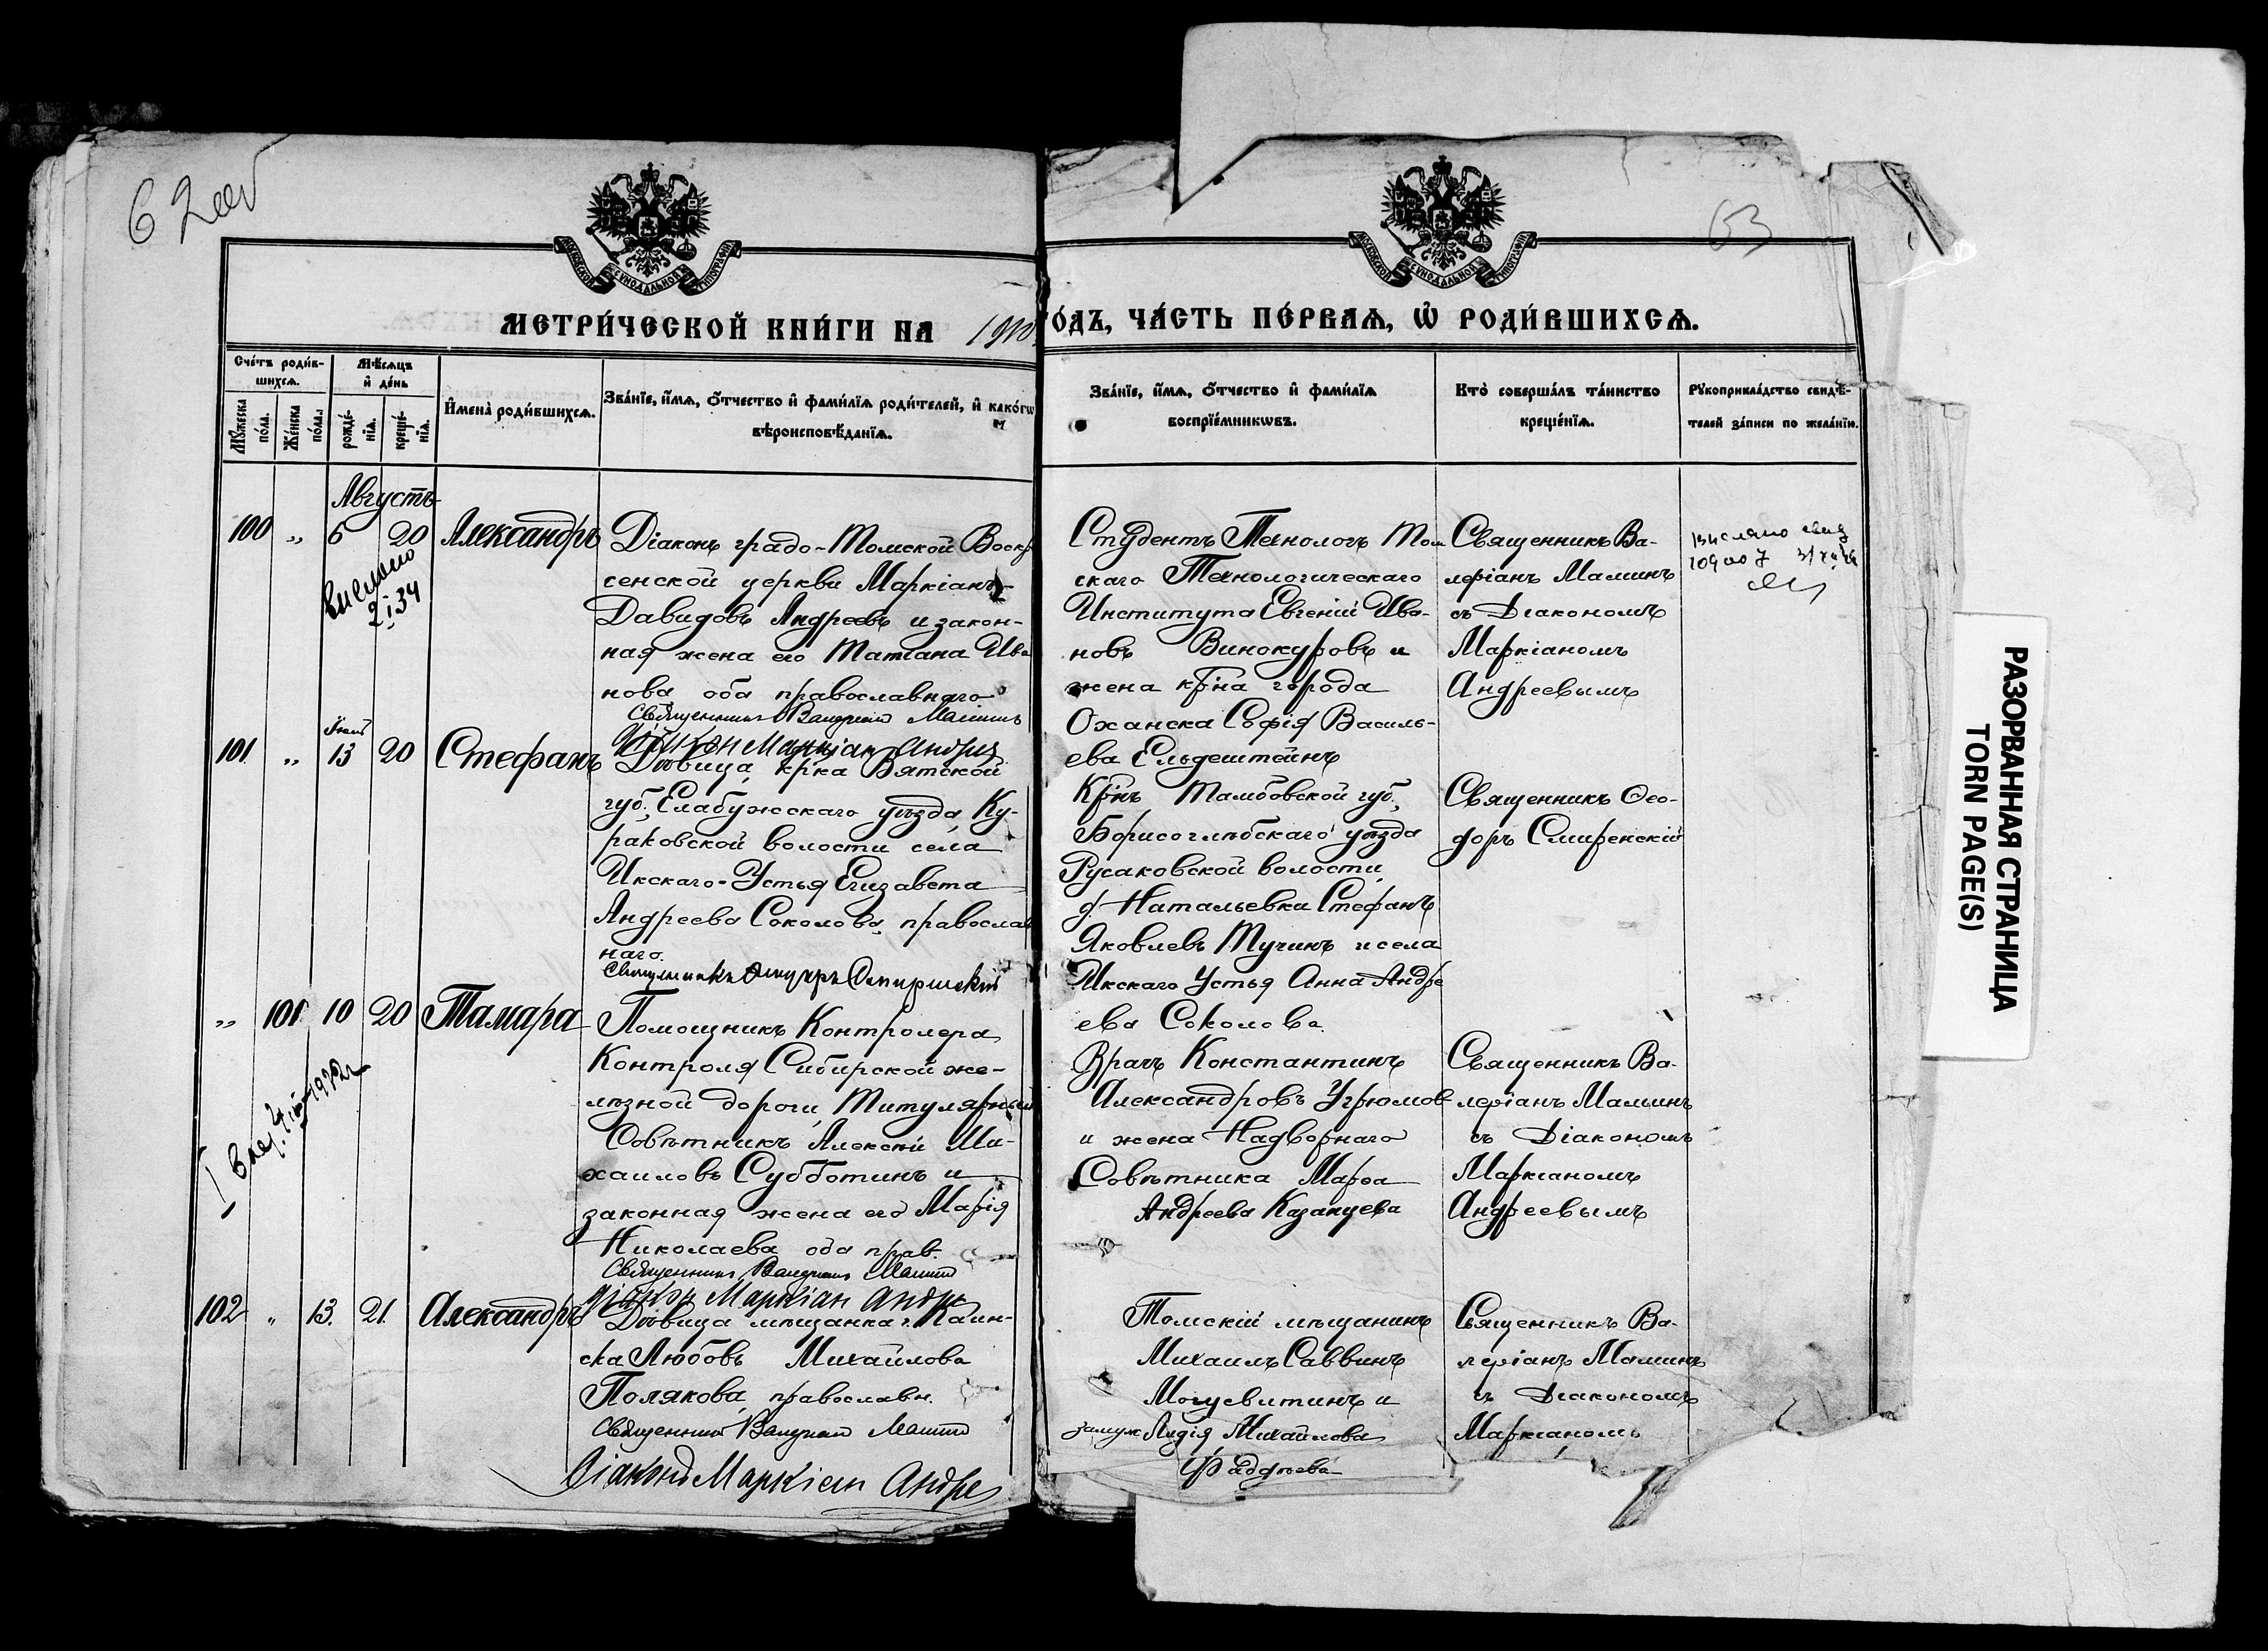 62 об
63
МОСКОВСКОЙ СѴНОДАЛЬНОЙ ТИПОГРАФІИ
МОСКОВСКОЙ СѴНОДАЛЬНОЙ ТИПОГРАФІИ
МЕТРИ́ЧЕСКОЙ КНИ́ГИ НА 1910 ГО́ДЪ, ЧА́СТЬ ПЕ́РВАѦ, Ѡ҆ РОДИ́ВШИХСѦ.
Сче́тъ роди́в-
шихсѧ.
Мꙋ́жеска по́ла.
Же́нска по́ла.
Мѣ́сѧцъ
и҆ де́нь
рожде́-
нїѧ.
креще́-
нїѧ.
И҆мена̀ роди́вшихсѧ.
Зва́нїе, и҆́мѧ, ѻ҆́тчество и҆ фами́лїѧ роди́телей, и҆ како́гѡ
вѣроисповѣ́данїѧ.
Зва́нїе, и҆́мѧ, ѻ҆́тчество и҆ фами́лїѧ
воспрїе́мникѡвъ.
Кто̀ соверша́лъ та́инство
креще́нїѧ.
Рꙋкоприкла́дство свидѣ́-
телей за́писи по жела́нїю.
Августъ
100 „ 6 20 Александръ
выслано
2 I 34
Діаконъ градо-Томской Воскре
сенской церкви Маркіанъ
Давидовъ Андреевъ и закон-
ная жена его Татіана Ива
нова оба православнаго
Священникъ Валеріанъ Маминъ
Діаконъ Маркіан Андрее
Студентъ Технологъ Том
скаго Технологическаго
Института Евгеній Ива-
новъ Винокуровъ и
жена кр̄на города
Оханска Софія Василь-
ева Ельдештейнъ
Священникъ Ва-
леріанъ Маминъ
съ Діакономъ
Маркіаномъ
Андреевымъ
101 „ 13 20 Стефанъ
Дѣвица, кр̄ка Вятской
губ., Елабужскаго уѣзда, Ку-
раковской волости села
Икскаго-Устья Елизавета
Андреева Соколова, православ
наго.
Кр̄нъ Тамбовской губ.,
Борисоглѣбскаго уѣзда
Русаковской волости,
д. Натальевка Стефанъ
Яковлевъ Тучинъ и села
Икскаго Устья Анна Андре
ева Соколова.
Священникъ Ѳео-
доръ Смиренскій
„ 101 10 20 Тамара
Помощникъ Контролера
Контроля Сибирской же-
лѣзной дороги, Титулярный
Совѣтникъ Алексѣй Ми-
хаиловъ Субботинъ и
законная жена его Марія
Николаева оба прав.
Священникъ Валеріанъ Маминъ
Діакон Маркіан Андре
Врачъ Константинъ
Александровъ Угрюмов
и жена Надворнаго
Совѣтника Марѳа
Андреева Казанцева
Священникъ Ва-
леріанъ Маминъ
съ Діакономъ
Маркіаномъ
Андреевымъ
102 „ 13. 21. Александръ
Дѣвица мѣщанка г. Каин-
ска Любовь Михайлова
Полякова, православн.
Священникъ Валеріанъ Маминъ
Діаконъ Маркіан Андре
Томскій мѣщанинъ
Михаилъ Саввинъ
Могусвитинъ и
замуж Лидія Михайлова
Фаддѣева
Священникъ Ва-
леріанъ Маминъ
съ Діакономъ
Маркіаномъ
РАЗОРВАННАЯ СТРАНИЦА
TORN PAGE(S)